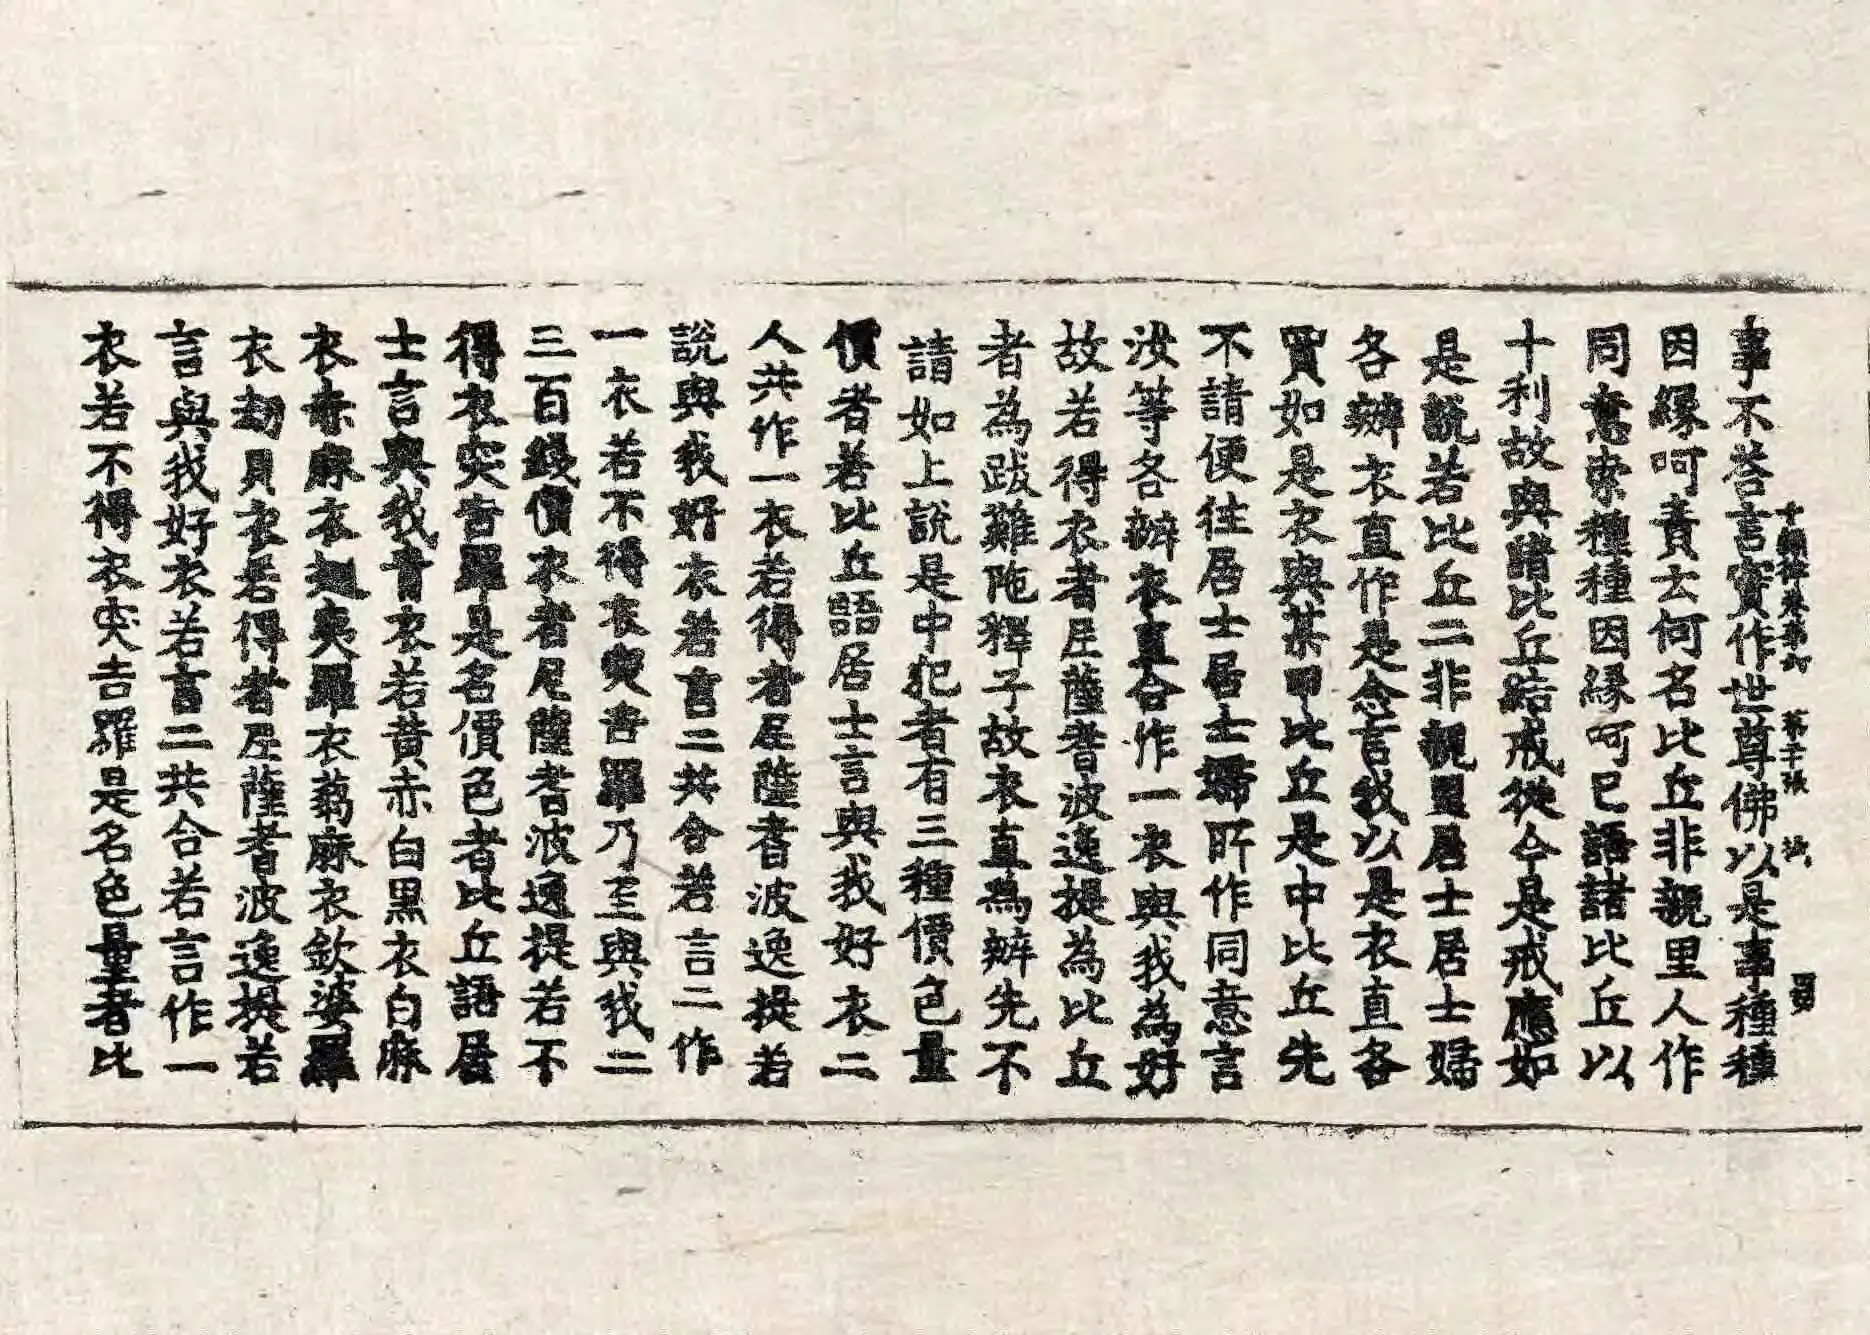 事不荅言實作世尊佛以是事種種
因緣呵責云何名比丘非親里人作
同意索種種因緣呵已語諸比丘以
十利故與諸比丘結戒從今是戒應如
是說若比丘二非親里居士居士婦
各辦衣直作是念言我以是衣直各
買如是衣與某甲比丘是中比丘先
不請便往居士居士婦所作同意言
汝等各辦衣直合作一衣與我為好
故若得衣者尼薩耆波逸提為比丘
者為跋難陁釋子故衣直為辦先不
請如上說是中犯者有三種價色量
價者若比丘語居士言與我好衣二
人共作一衣若得者尼薩耆波逸提若
說與我好衣若言二共合若言二作
一衣若不得衣突吉羅乃至與我二
三百錢價衣者尼薩耆波逸提若不
得衣突吉羅是名價色者比丘語居
士言與我青衣若黃赤白黑衣白麻
衣赤麻衣翅夷羅衣蒭麻衣欽婆羅
衣劫貝衣若得者尼薩耆波逸提若
言與我好衣若言二共合若言作一
衣若不得衣突吉羅是名色量者比